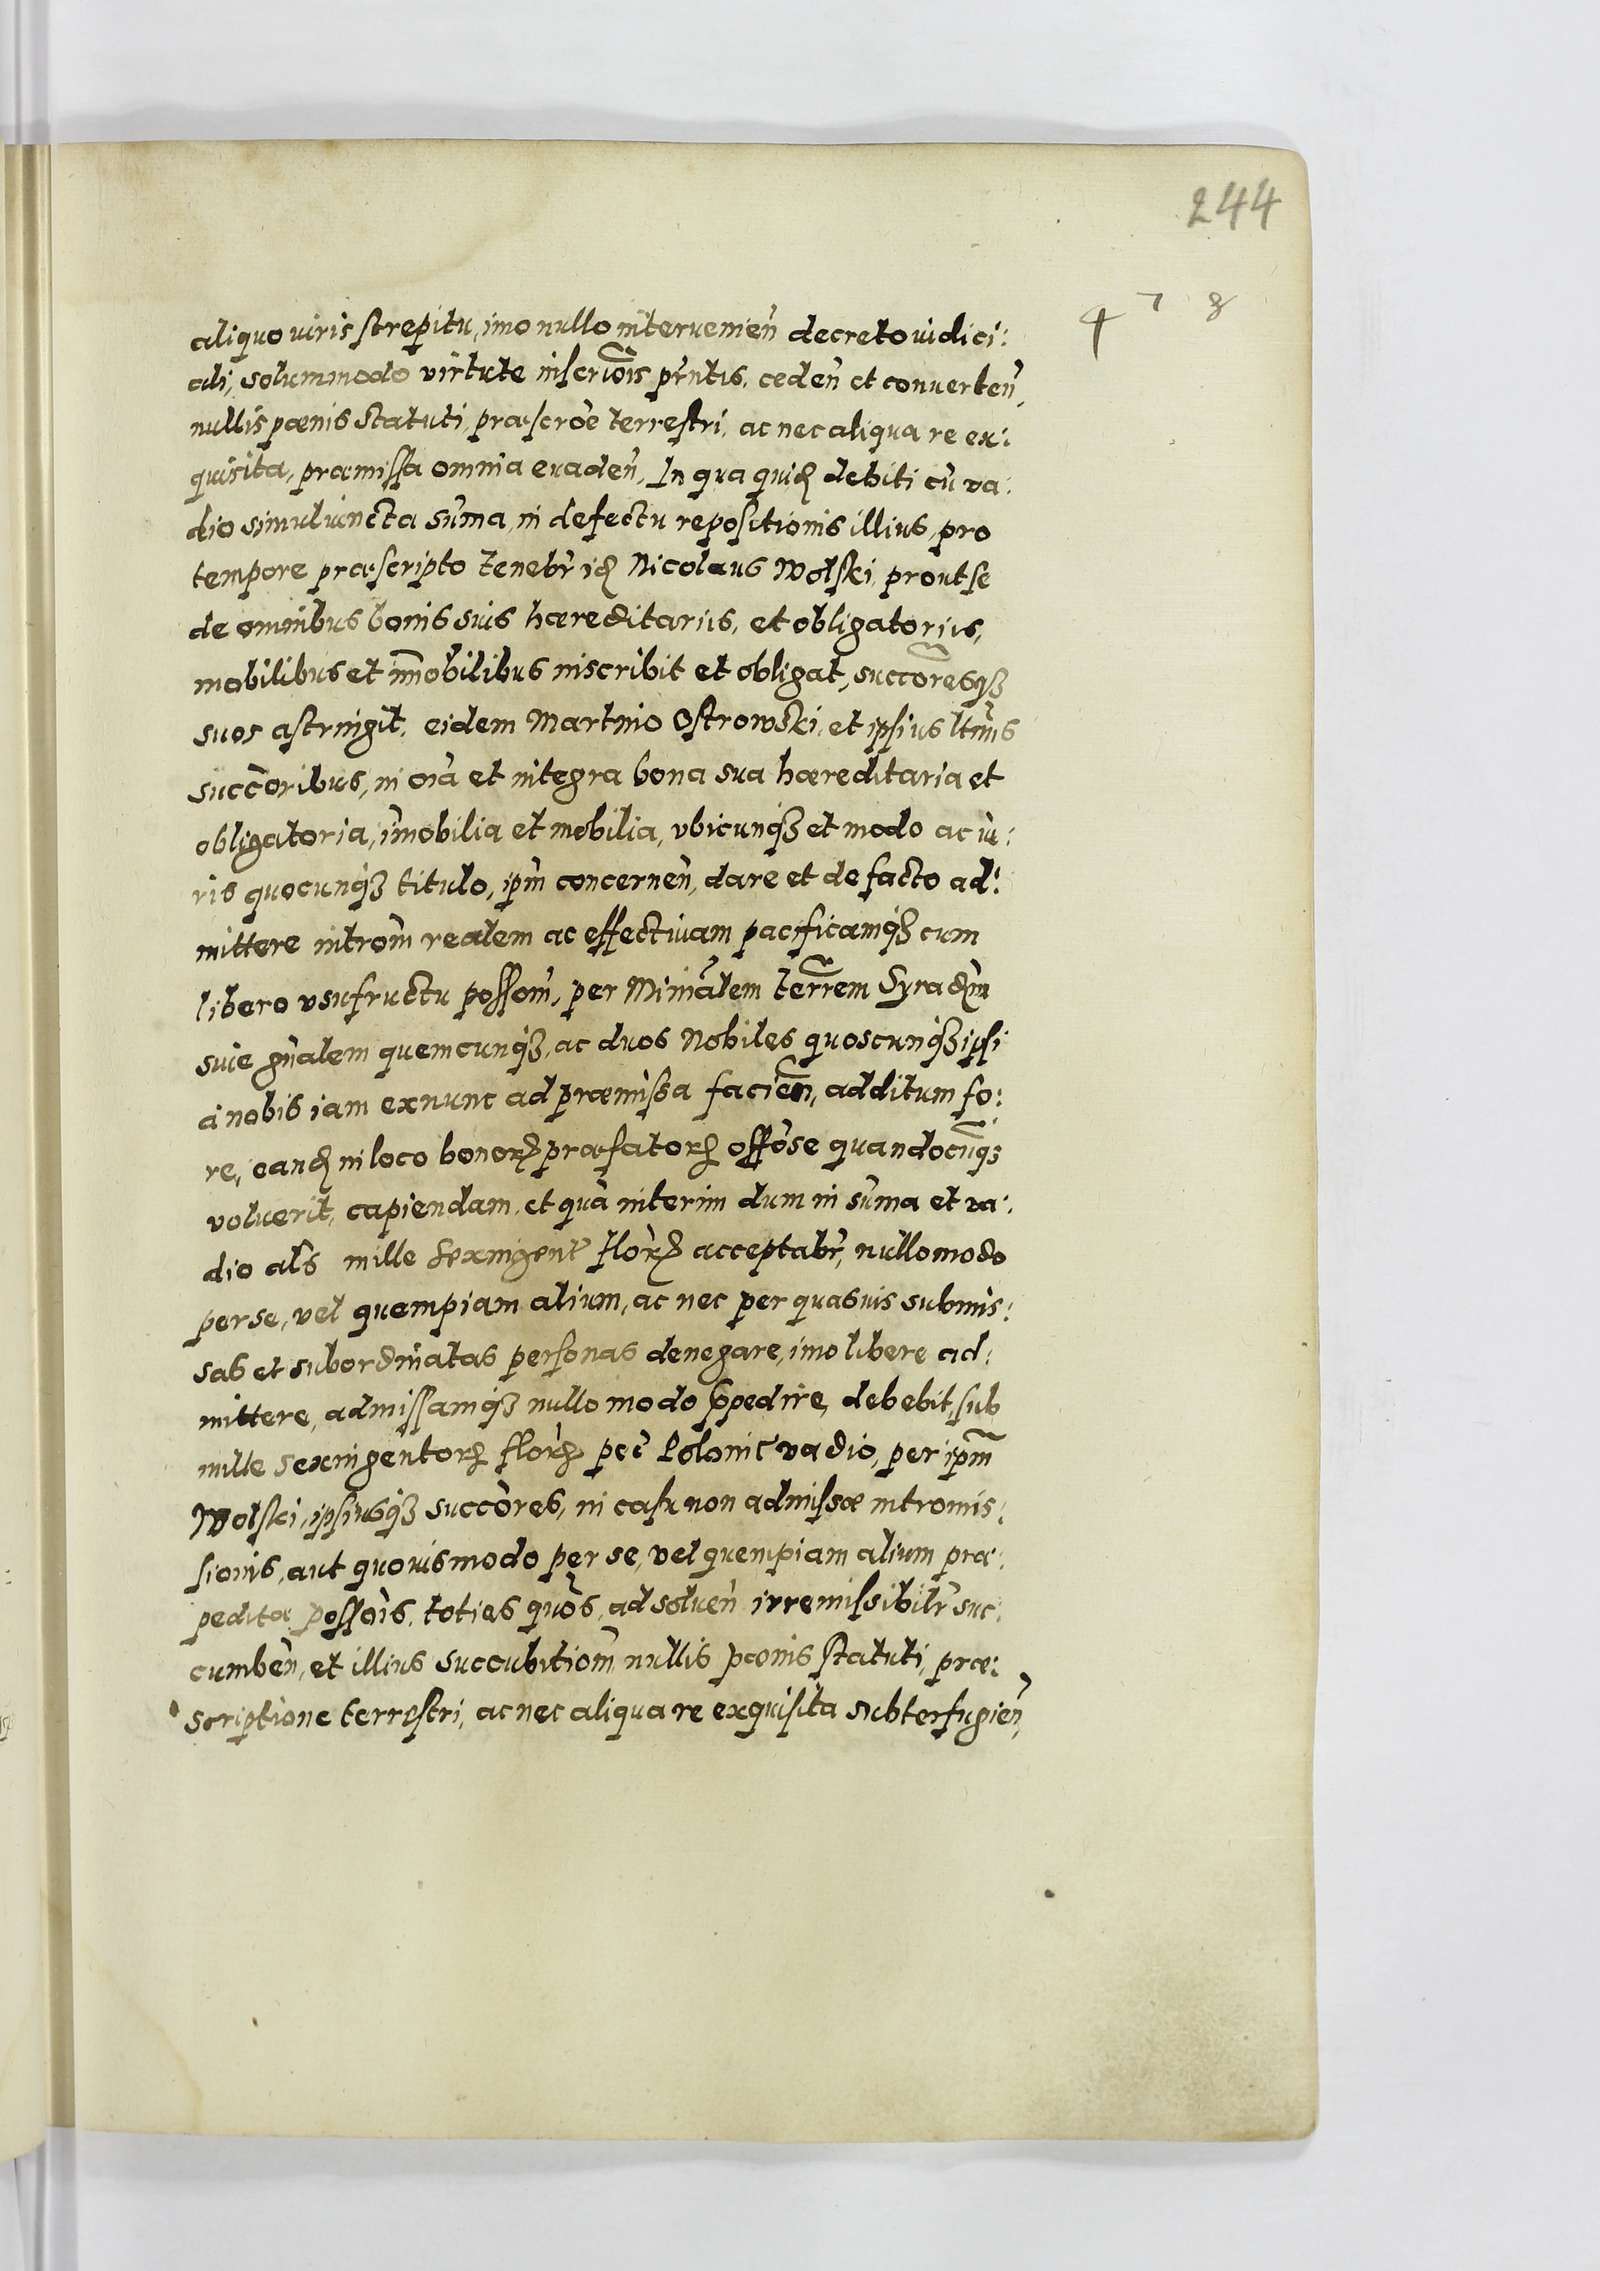 244
4 7 8
aliquo iuris strepitu, imo nullo interuenien̄ decreto iudici:
ali, solummodo virtute inscriōis prn̄tis, ceden̄ et conuerten̄,
nullis pœnis statuti, præscrōe terrestri, ac nec aliqua re ex:
quisita, præmissa omnia euaden̄, In qua quid̄ debiti cū va:
dio simul iuncta sūma, in defectu repositionis illius, pro
tempore præscripto tenebr̄ id̄ Nicolaus Wolski, prout se
de omnibus bonis suis hæreditariis, et obligatoriis,
mobilibus et im̄obilibus inscribit et obligat, succōresqȝ
suos astringit, eidem Martino Ostrowski, et ipsius ltīmis
succōribus, in oīa et integra bona sua hæreditaria et
obligatoria, im̄obilia et mobilia, vbicunqȝ et modo ac iu:
ris quocunqȝ titulo, ipm̄ concernen̄, dare et de facto ad:
mittere introm̄ realem ac effectiuam pacificamqȝ cum
libero vsufructu possom̄, per Miniālem terrēm Syradien̄
siue gn̄alem quemcunqȝ, ac duos Nobiles quoscunqȝ ipsi
à nobis iam exnunc ad præmissa facien̄, additum fo:
re, eand̄ in loco bonoꝝ præfatoꝝ offōse quandocūqȝ
voluerit, capiendam, et quā interim dum in sūma et va:
dio al̄s mille sexingent̄ floꝝ acceptabr̄, nullo modo
per se, vel quempiam alium, ac nec per quasuis submis:
sas et subordinatas personas denegare, imo libere ad:
mittere, admissamqȝ nullo modo p̄pedire, debebit, sub
mille sexingentoꝝ floꝝ pec̄ Polonic̄ vadio, per ipm̄
Wolski, ipsiusqȝ succōres, in casu non admissæ intromis:
sionis, aut quouismodo per se, vel quempiam alium præ:
peditæ possōis, toties quōs, ad soluen̄ irremissibilr̄ suc:
cumben̄, et illius succubitiom̄ nullis pœnis statuti, præ:
scriptione terrestri, ac nec aliqua re exquisita subterfugien̄,